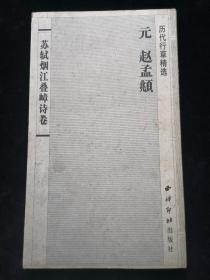 历代行草精选
元 赵孟頫
苏轼烟江叠嶂诗卷
西泠印社出版社